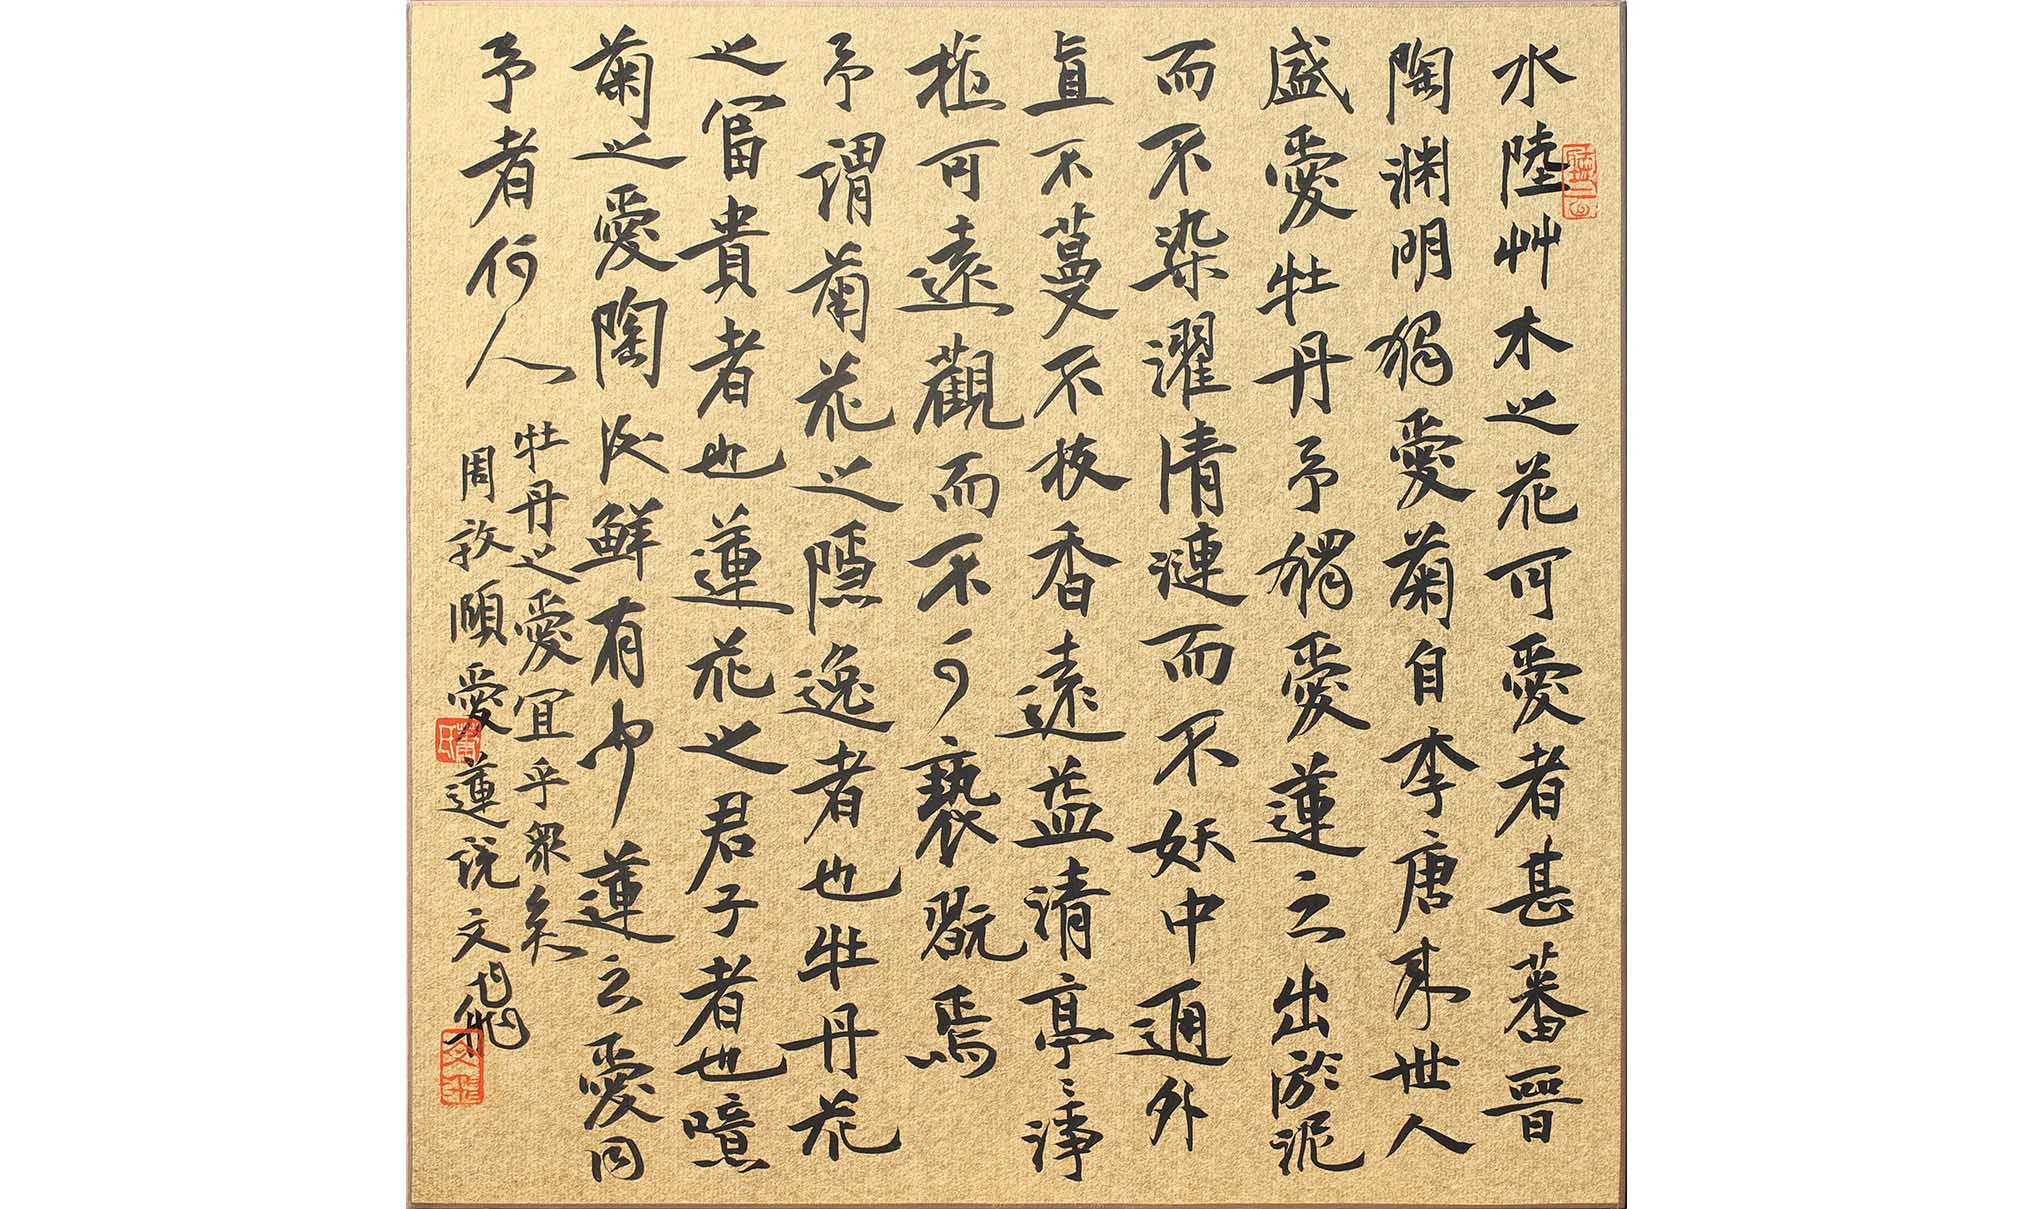 水陸艸木之花可愛者甚蕃晉
陶渊明獨愛菊自李唐來世人
盛愛牡丹予獨愛蓮之出淤泥
而不染濯清漣而不妖中通外
直不蔓不枝香遠益清亭亭淨
植可遠觀而不可褻翫焉
予謂菊花之隱逸者也牡丹花
之富貴者也蓮花之君子者也噫
菊之愛陶後鮮有聞蓮之愛同
予者何人
牡丹之愛宜乎眾矣
周敦頤愛蓮説文飛